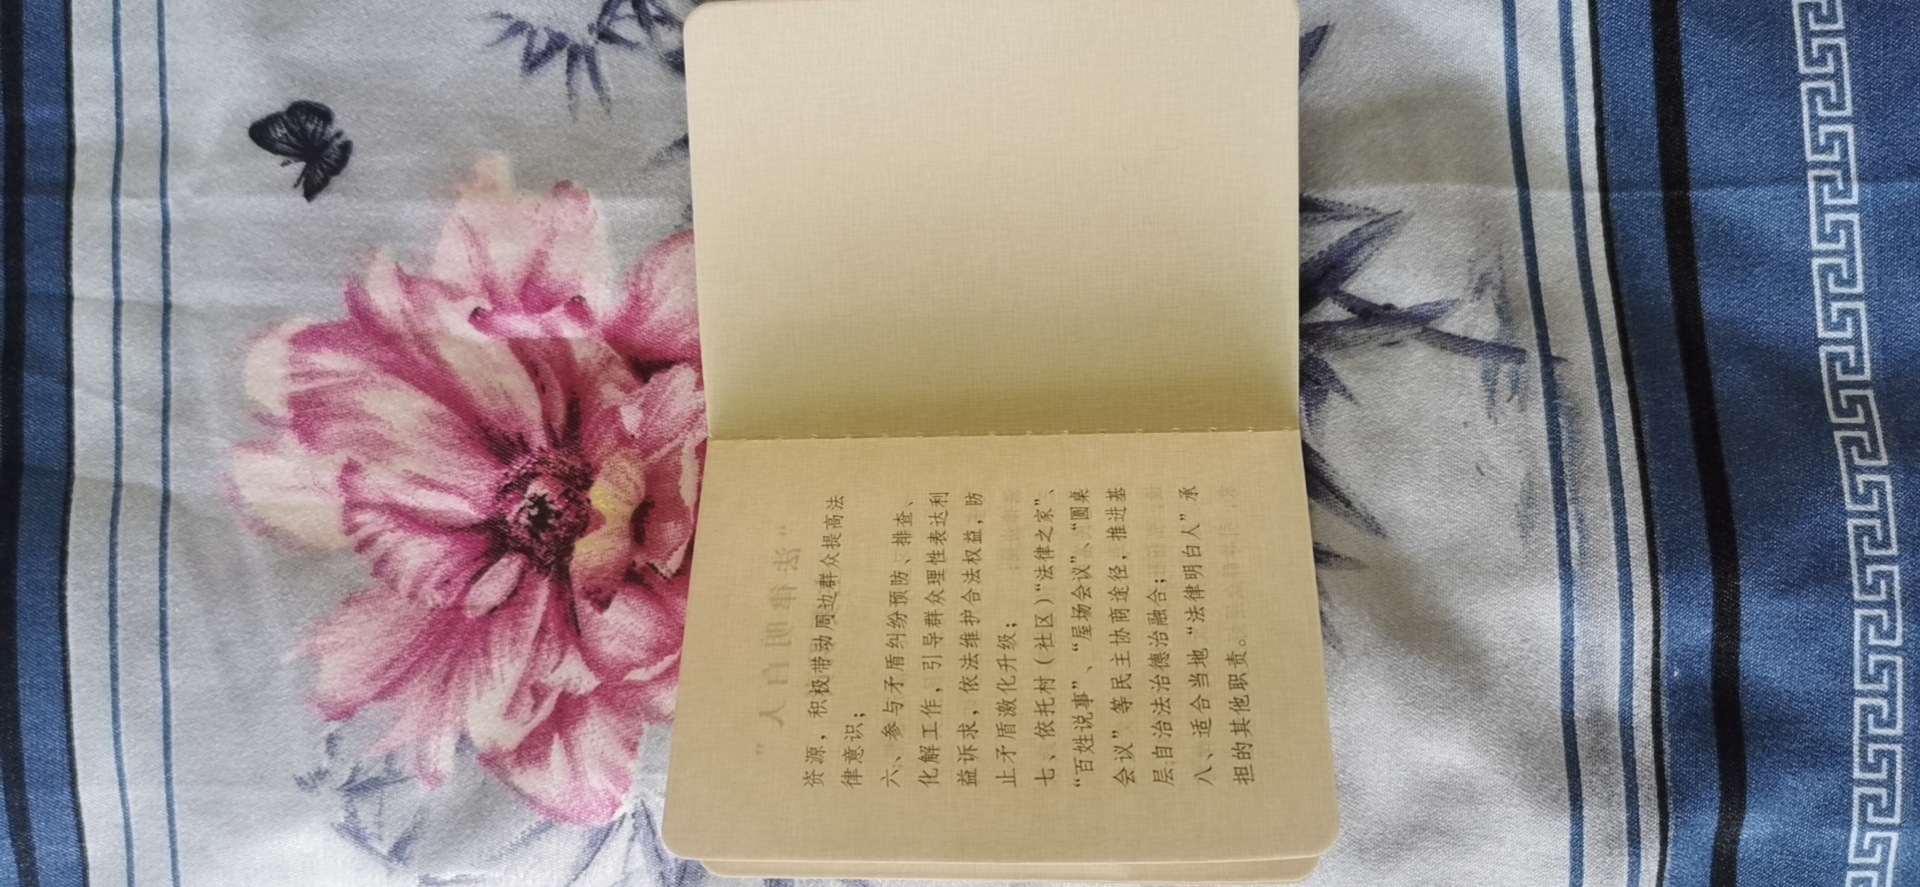 资源，积极带动周边群众提高法
律意识；
六、参与矛盾纠纷预防、排查、
化解工作，引导群众理性表达利
益诉求，依法维护合法权益，防
止矛盾激化升级；
七、依托村（社区）“法律之家”、
“百姓说事”、“屋场会议”“圆桌
会议”等民主协商途径，推进基
层自治法治德治融合；
八、适合当地“法律明白人”承
担的其他职责。